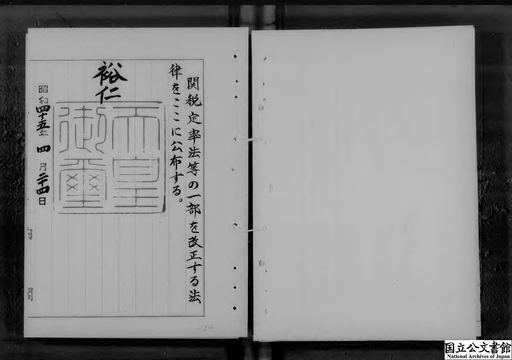 関税定率法等の一部を改正する法
律をここに公布する。
裕仁
天皇
御璽
昭和四十五年四月二十四日
月
国立公文書館
National Archives of Japan